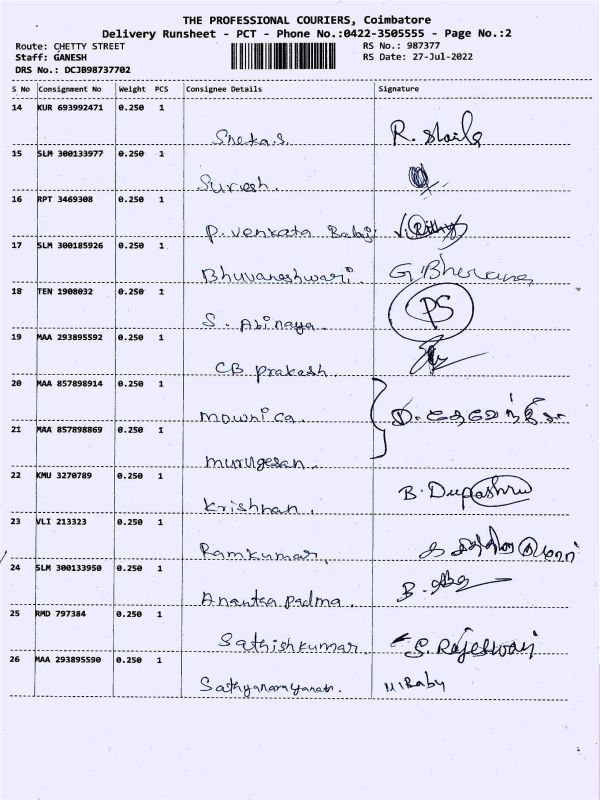 THE PROFESSIONAL COURIERS, Coimbatore
Delivery Runsheet - PCT - Phone No.:0422-3505555 - Page No.:2
Route: CHETTY STREET
RS No.: 987377
Staff: GANESH
RS Date: 27-Jul-2022
DRS No.: DCJB98737702
S No Consignment No Weight PCS Consignee Details Signature
14 KUR 693992471 0.250 1
Sneka.S. R.
15 SLM 300133977 0.250 1
Suresh.
16 RPT 3469308 0.250 1
P. Venkata Balaji
17 SLM 300185926 0.250 1
Bhuvaneshwari. G.
18 TEN 1908032 0.250 1
S. Abinaya. PS
19 MAA 293895592 0.250 1
CB prakash.
20 MAA 857898914 0.250 1
mownica.
21 MAA 857898869 0.250 1
murugesan.
22 KMU 3270789 0.250 1
Krishnan. B.
23 VLI 213323 0.250 1
Ramkumar.
24 SLM 300133950 0.250 1
Anantha padma. B.
25 RMD 797384 0.250 1
Sathishkumar S. Rajeswari
26 MAA 293895590 0.250 1
Sathyanarayanan. M. Baby